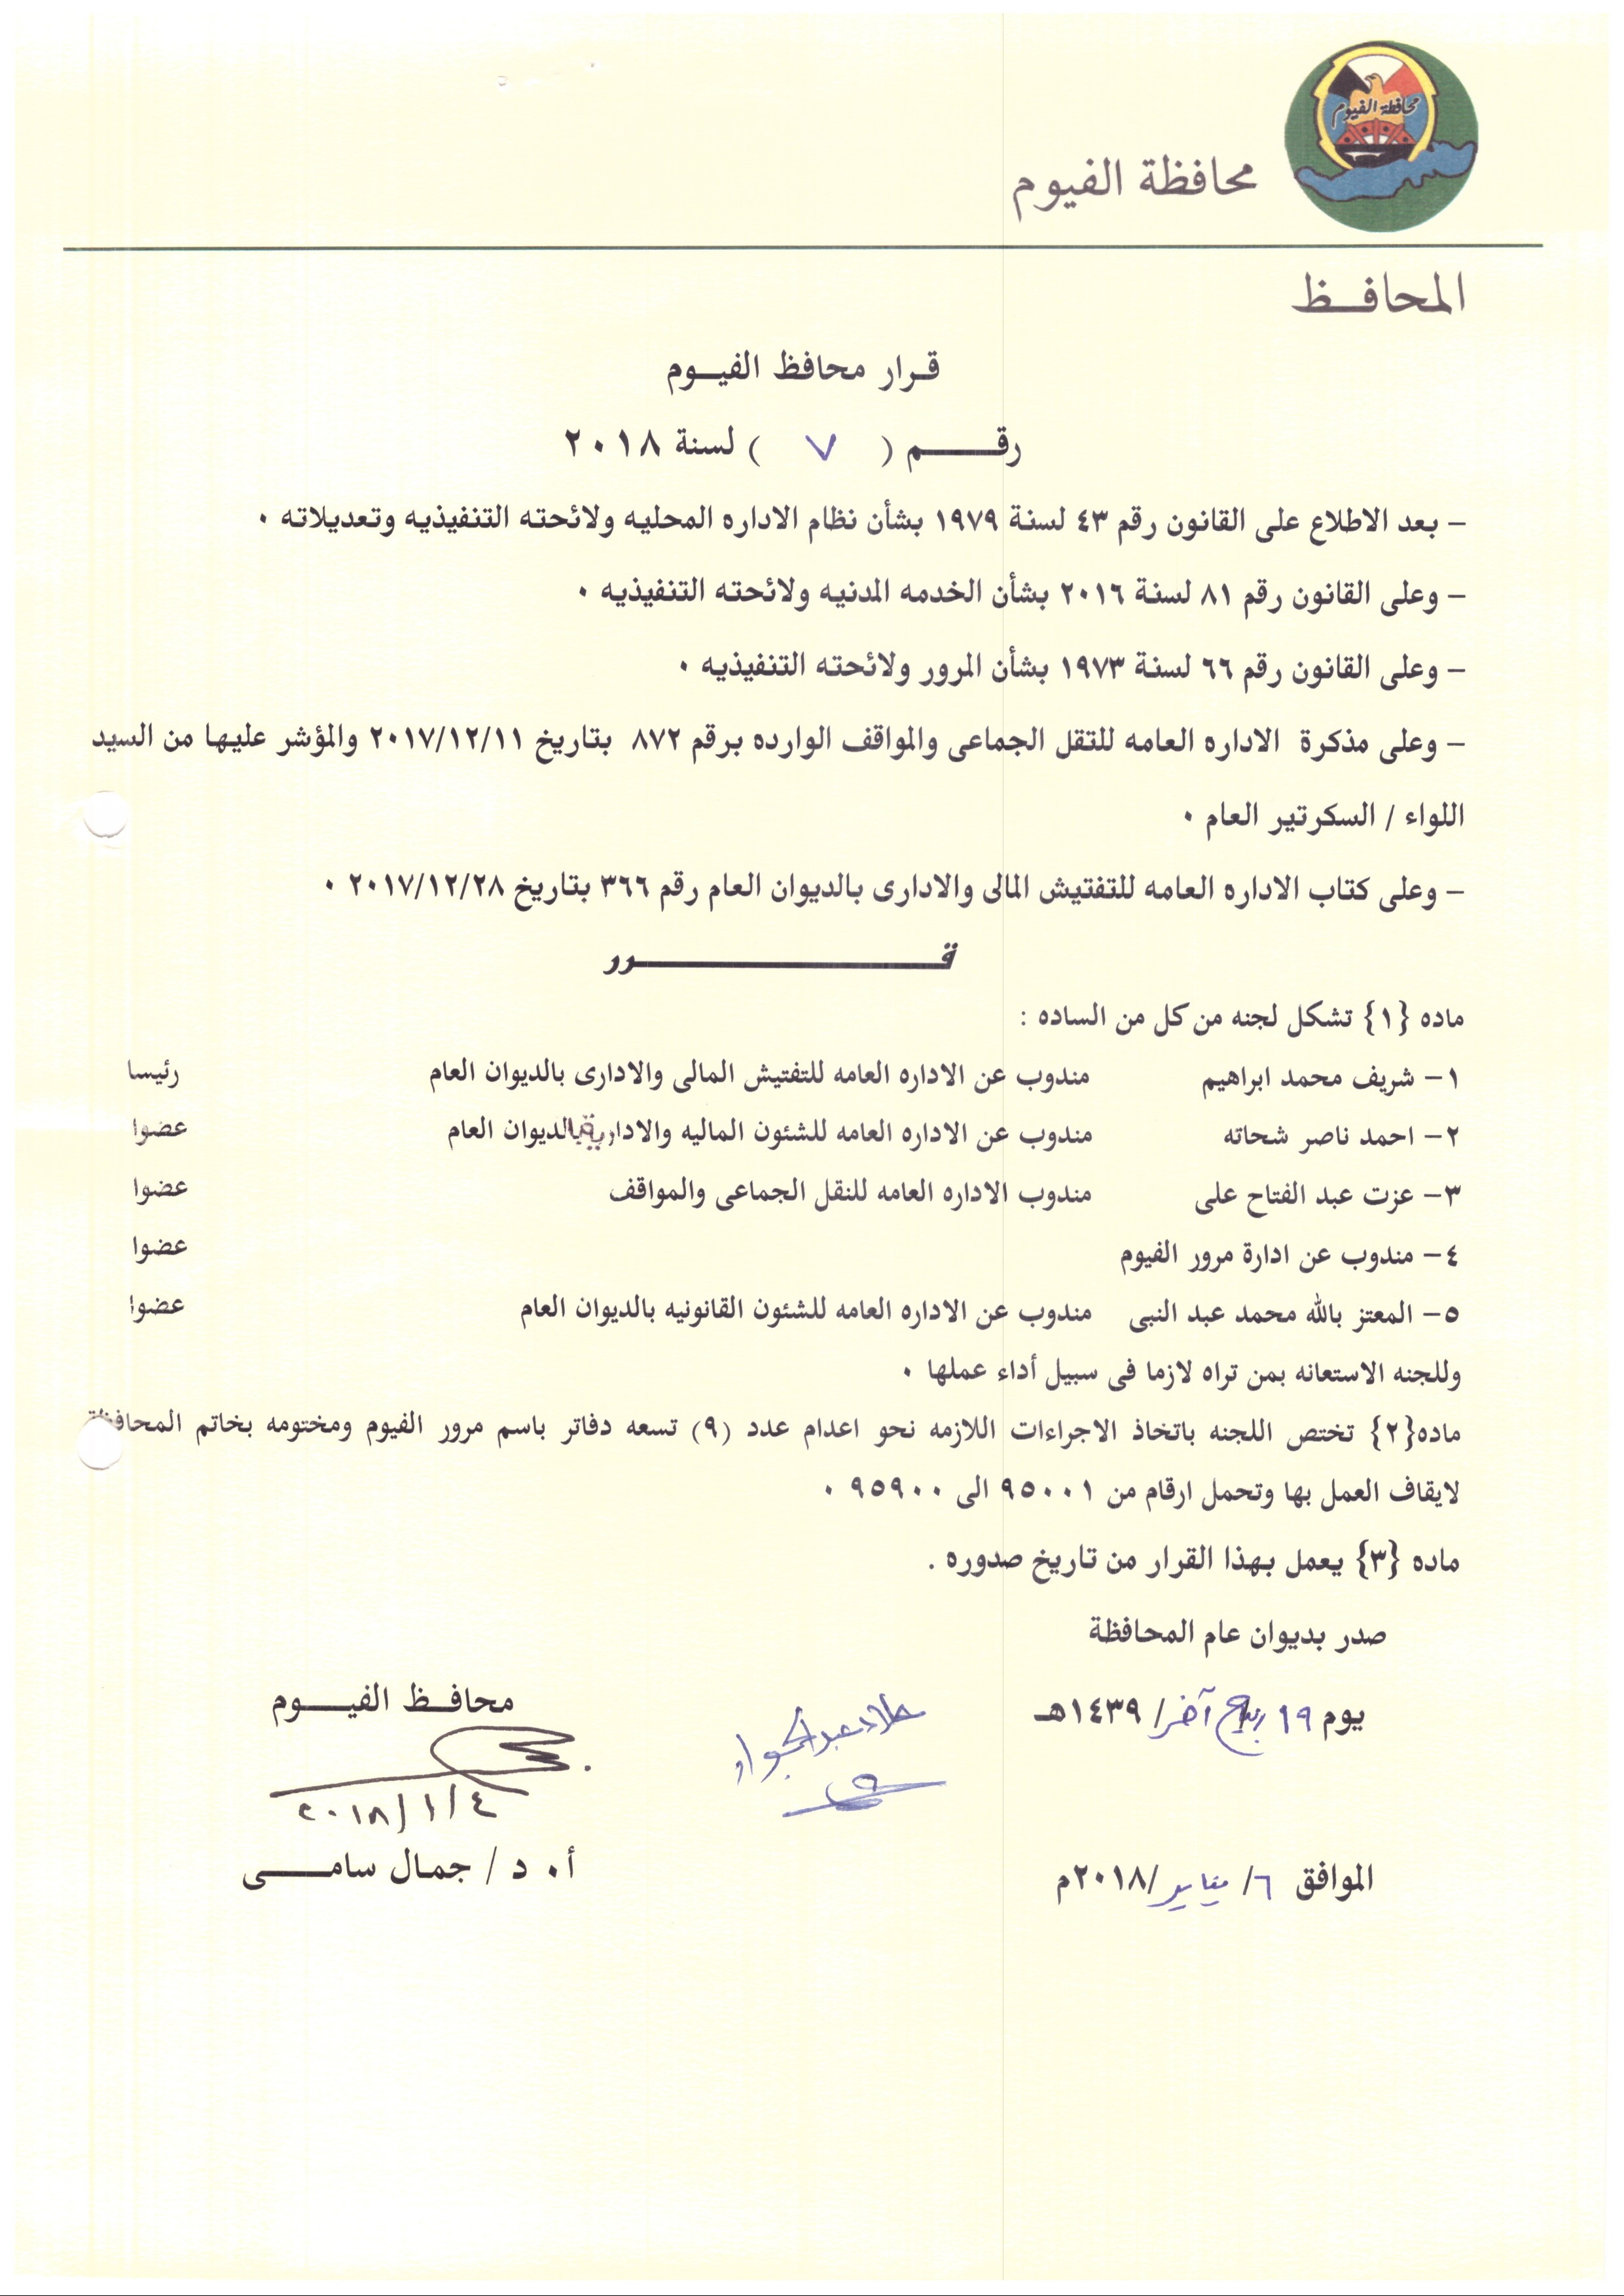 محافظة الفيوم
محافظة الفيوم
المحافـظ
قـرار محافظ الفيـوم
رقـــم ( ٧ ) لسنة ٢٠١٨
– بعد الاطلاع على القانون رقم ٤٣ لسنة ١٩٧٩ بشأن نظام الاداره المحليه ولائحته التنفيذيه وتعديلاته ٠
– وعلى القانون رقم ٨١ لسنة ٢٠١٦ بشأن الخدمه المدنيه ولائحته التنفيذيه ٠
– وعلى القانون رقم ٦٦ لسنة ١٩٧٣ بشأن المرور ولائحته التنفيذيه ٠
– وعلى مذكرة الاداره العامه للتقل الجماعى والمواقف الوارده برقم ٨٧٢ بتاريخ ٢٠١٧/١٢/١١ والمؤشر عليها من السيد
اللواء / السكرتير العام ٠
– وعلى كتاب الاداره العامه للتفتيش المالى والادارى بالديوان العام رقم ٣٦٦ بتاريخ ٢٠١٧/١٢/٢٨ ٠
قـــــــــــــرر
ماده {١} تشكل لجنه من كل من الساده :
١– شريف محمد ابراهيم مندوب عن الاداره العامه للتفتيش المالى والادارى بالديوان العام رئيسا
٢– احمد ناصر شحاته مندوب عن الاداره العامه للشئون الماليه والادارية بالديوان العام عضوا
٣– عزت عبد الفتاح على مندوب الاداره العامه للنقل الجماعى والمواقف عضوا
٤– مندوب عن ادارة مرور الفيوم عضوا
٥– المعتز بالله محمد عبد النبى مندوب عن الاداره العامه للشئون القانونيه بالديوان العام عضوا
وللجنه الاستعانه بمن تراه لازما فى سبيل أداء عملها ٠
ماده{٢} تختص اللجنه باتخاذ الاجراءات اللازمه نحو اعدام عدد (٩) تسعه دفاتر باسم مرور الفيوم ومختومه بخاتم المحافظة
لايقاف العمل بها وتحمل ارقام من ٩٥٠٠١ الى ٩٥٩٠٠ ٠
ماده {٣} يعمل بهذا القرار من تاريخ صدوره .
صدر بديوان عام المحافظة
يوم ١٩ ربيع آخر/ ١٤٣٩هـ
محافـظ الفيـــوم
علاء عبد الجواد
٢٠١٨/١/٤
أ٠ د / جمال سامـــى
الموافق ٦/ يناير/٢٠١٨م